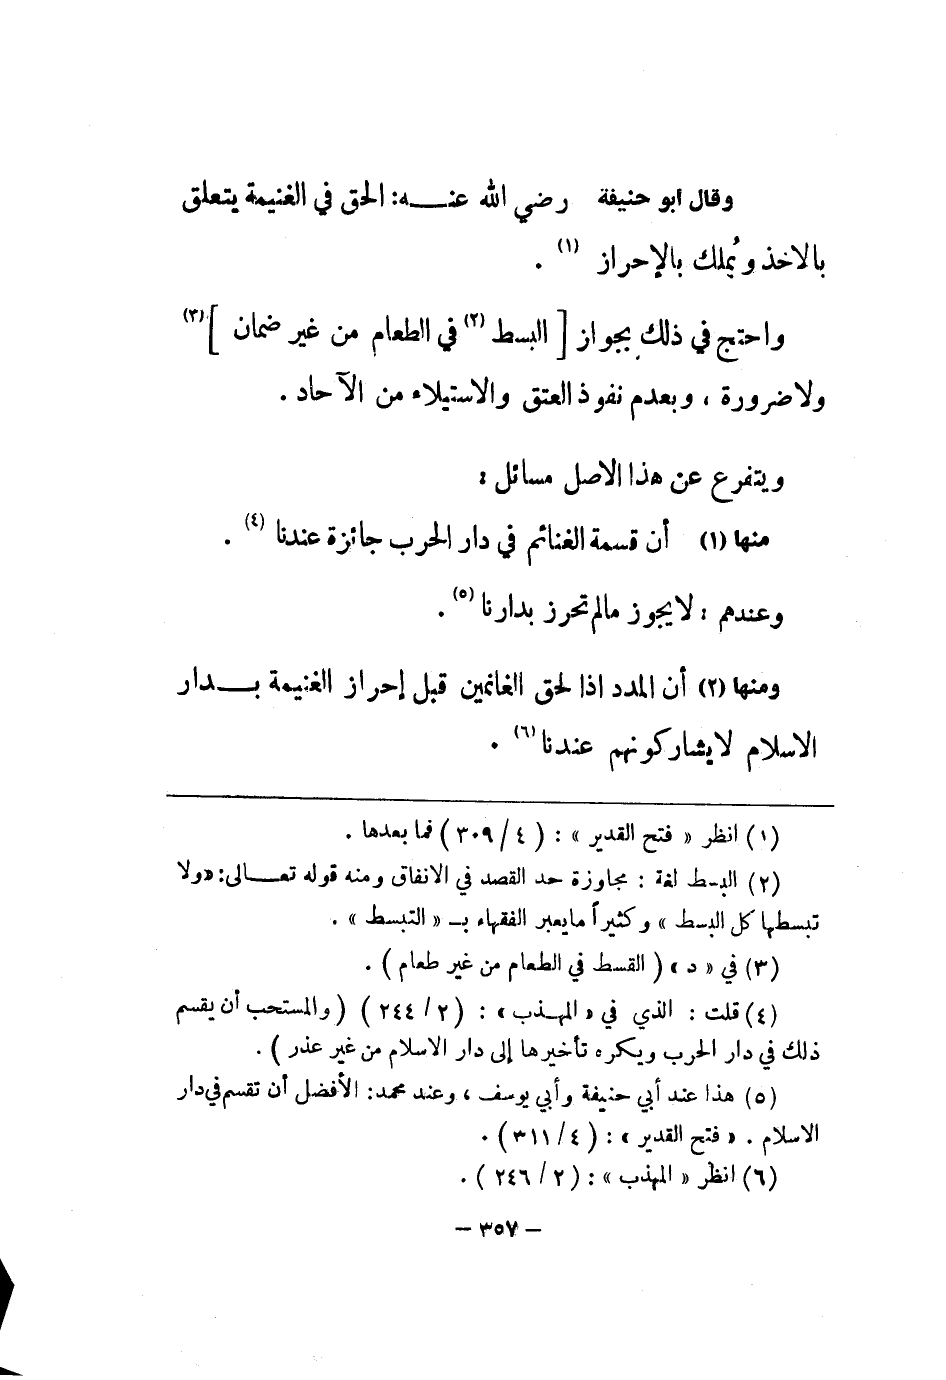 وقال ابو حنيفة رضي الله عنـــه: الحق في الغنيمة يتعلق
بالاخذ ويُملك بالإحراز (١) .
واحتج في ذلك بجواز [ البسط (٢) في الطعام من غير ضمان ](٣)
ولاضرورة ، وبعدم نفوذ العتق والاستيلاء من الآحاد .
ويتفرع عن هذا الاصل مسائل :
منها (١) أن قسمة الغنائم في دار الحرب جائزة عندنا (٤) .
وعندهم : لايجوز مالم تحرز بدارنا (٥) .
ومنها (٢) أن المدد اذا لحق الغانمين قبل إحراز الغنيمة بـــدار
الاسلام لايشاركونهم عندنا (٦) .
(١) انظر « فتح القدير » : ( ٤ / ٣٠٩ ) فما بعدها .
(٢) البسط لغة : مجاوزة حد القصد في الانفاق ومنه قوله تعـــالى: «ولا
تبسطها كل البسط » وكثيراً مايعبر الفقهاء بـ « التبسط » .
(٣) في « د » ( القسط في الطعام من غير طعام ) .
(٤) قلت : الذي في « المهـذب » : ( ٢ / ٢٤٤ ) ( والمستحب أن يقسم
ذلك في دار الحرب ويكره تأخيرها إلى دار الاسلام من غير عذر ) .
(٥) هذا عند أبي حنيفة وأبي يوسف ، وعند محمد: الأفضل أن تقسم في دار
الاسلام . « فتح القدير » : ( ٤ / ٣١١ ) .
(٦) انظر « المهذب » : ( ٢ / ٢٤٦ ) .
— ٣٥٧ —